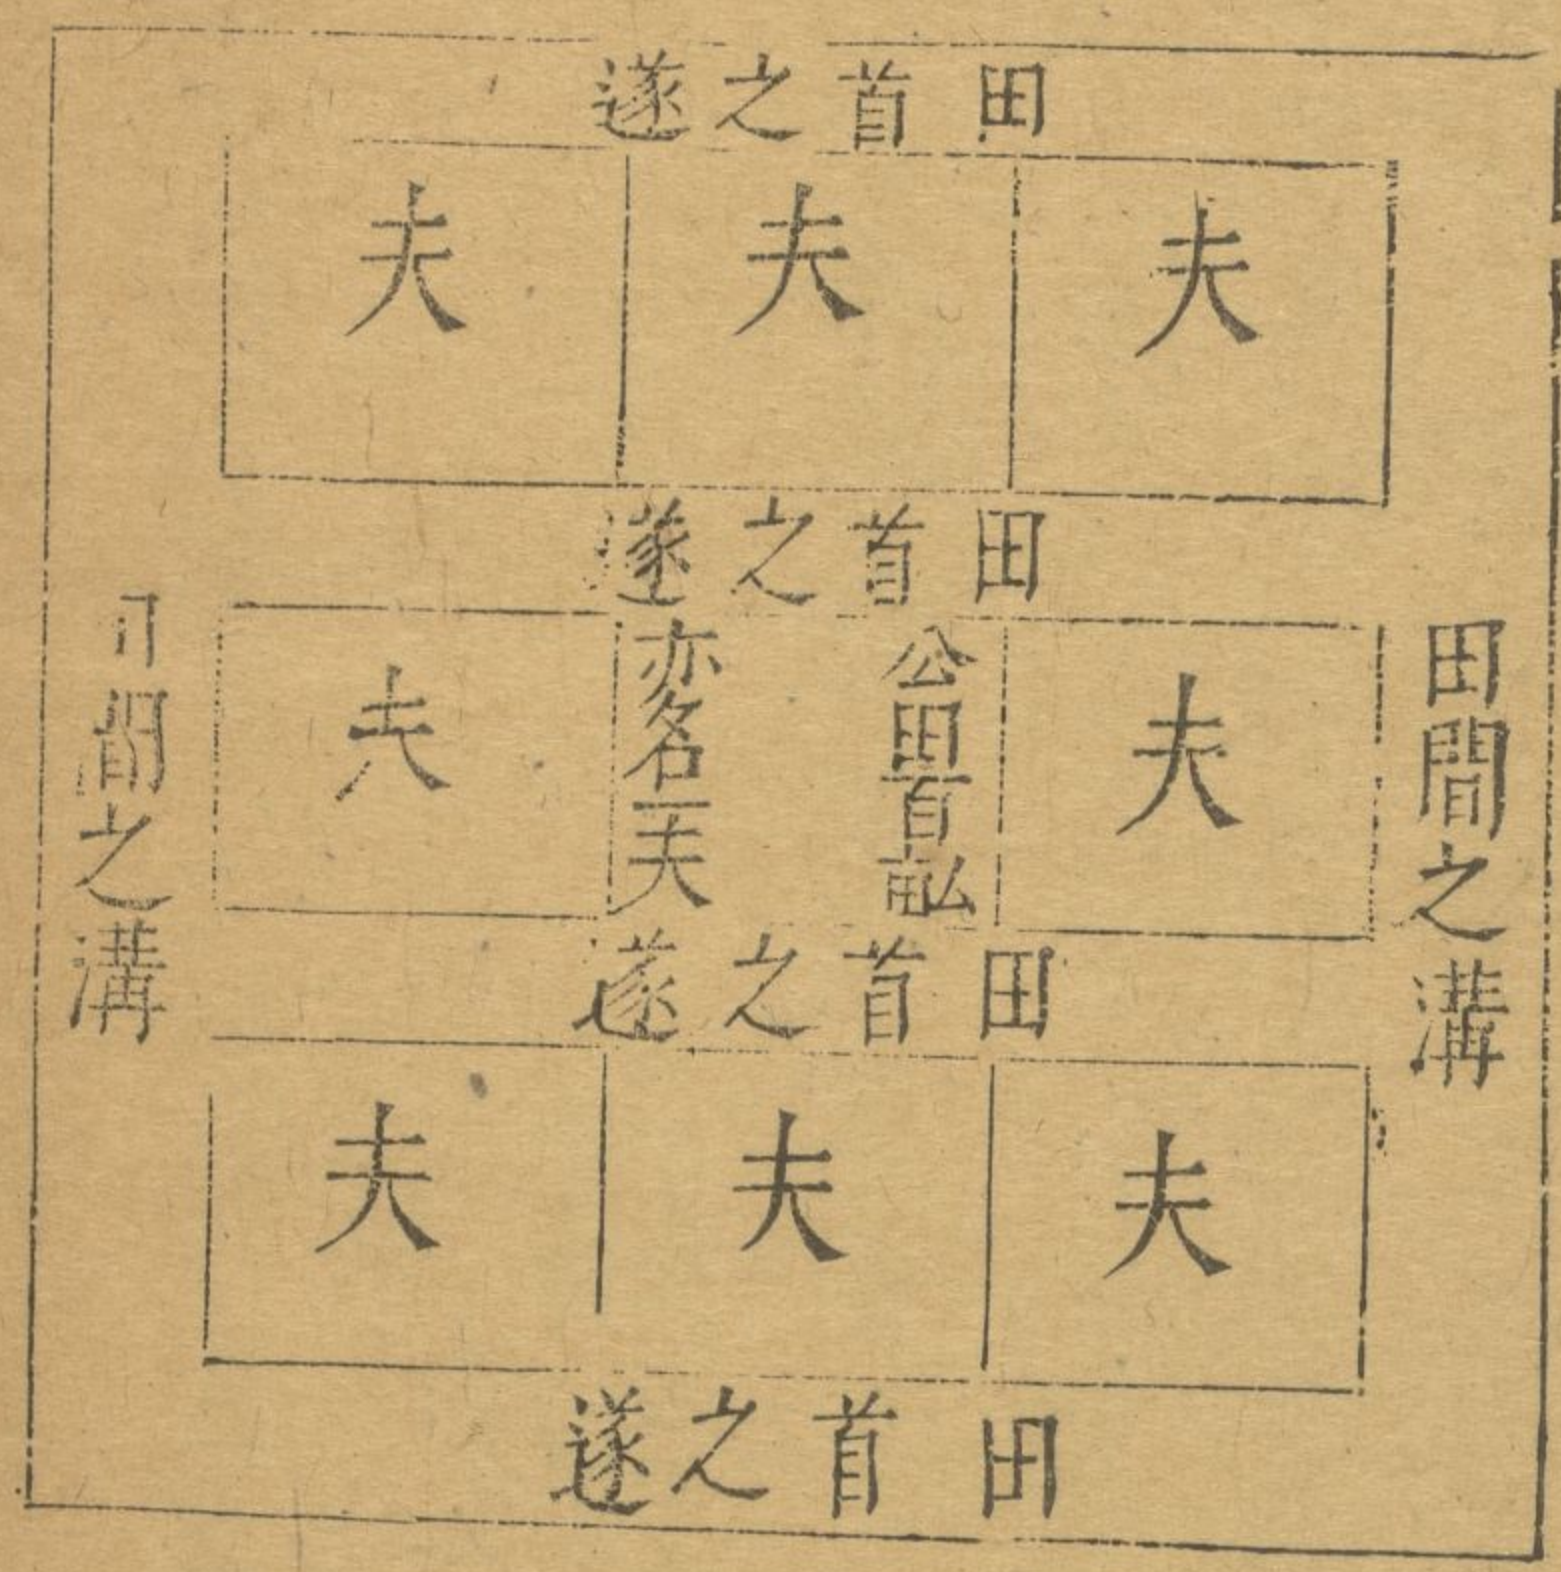 田首之遂
夫
夫
夫
田首之遂
田間之溝
夫
公田百畝
亦名一夫
夫
間之溝
田首之遂
夫
夫
夫
田首之遂